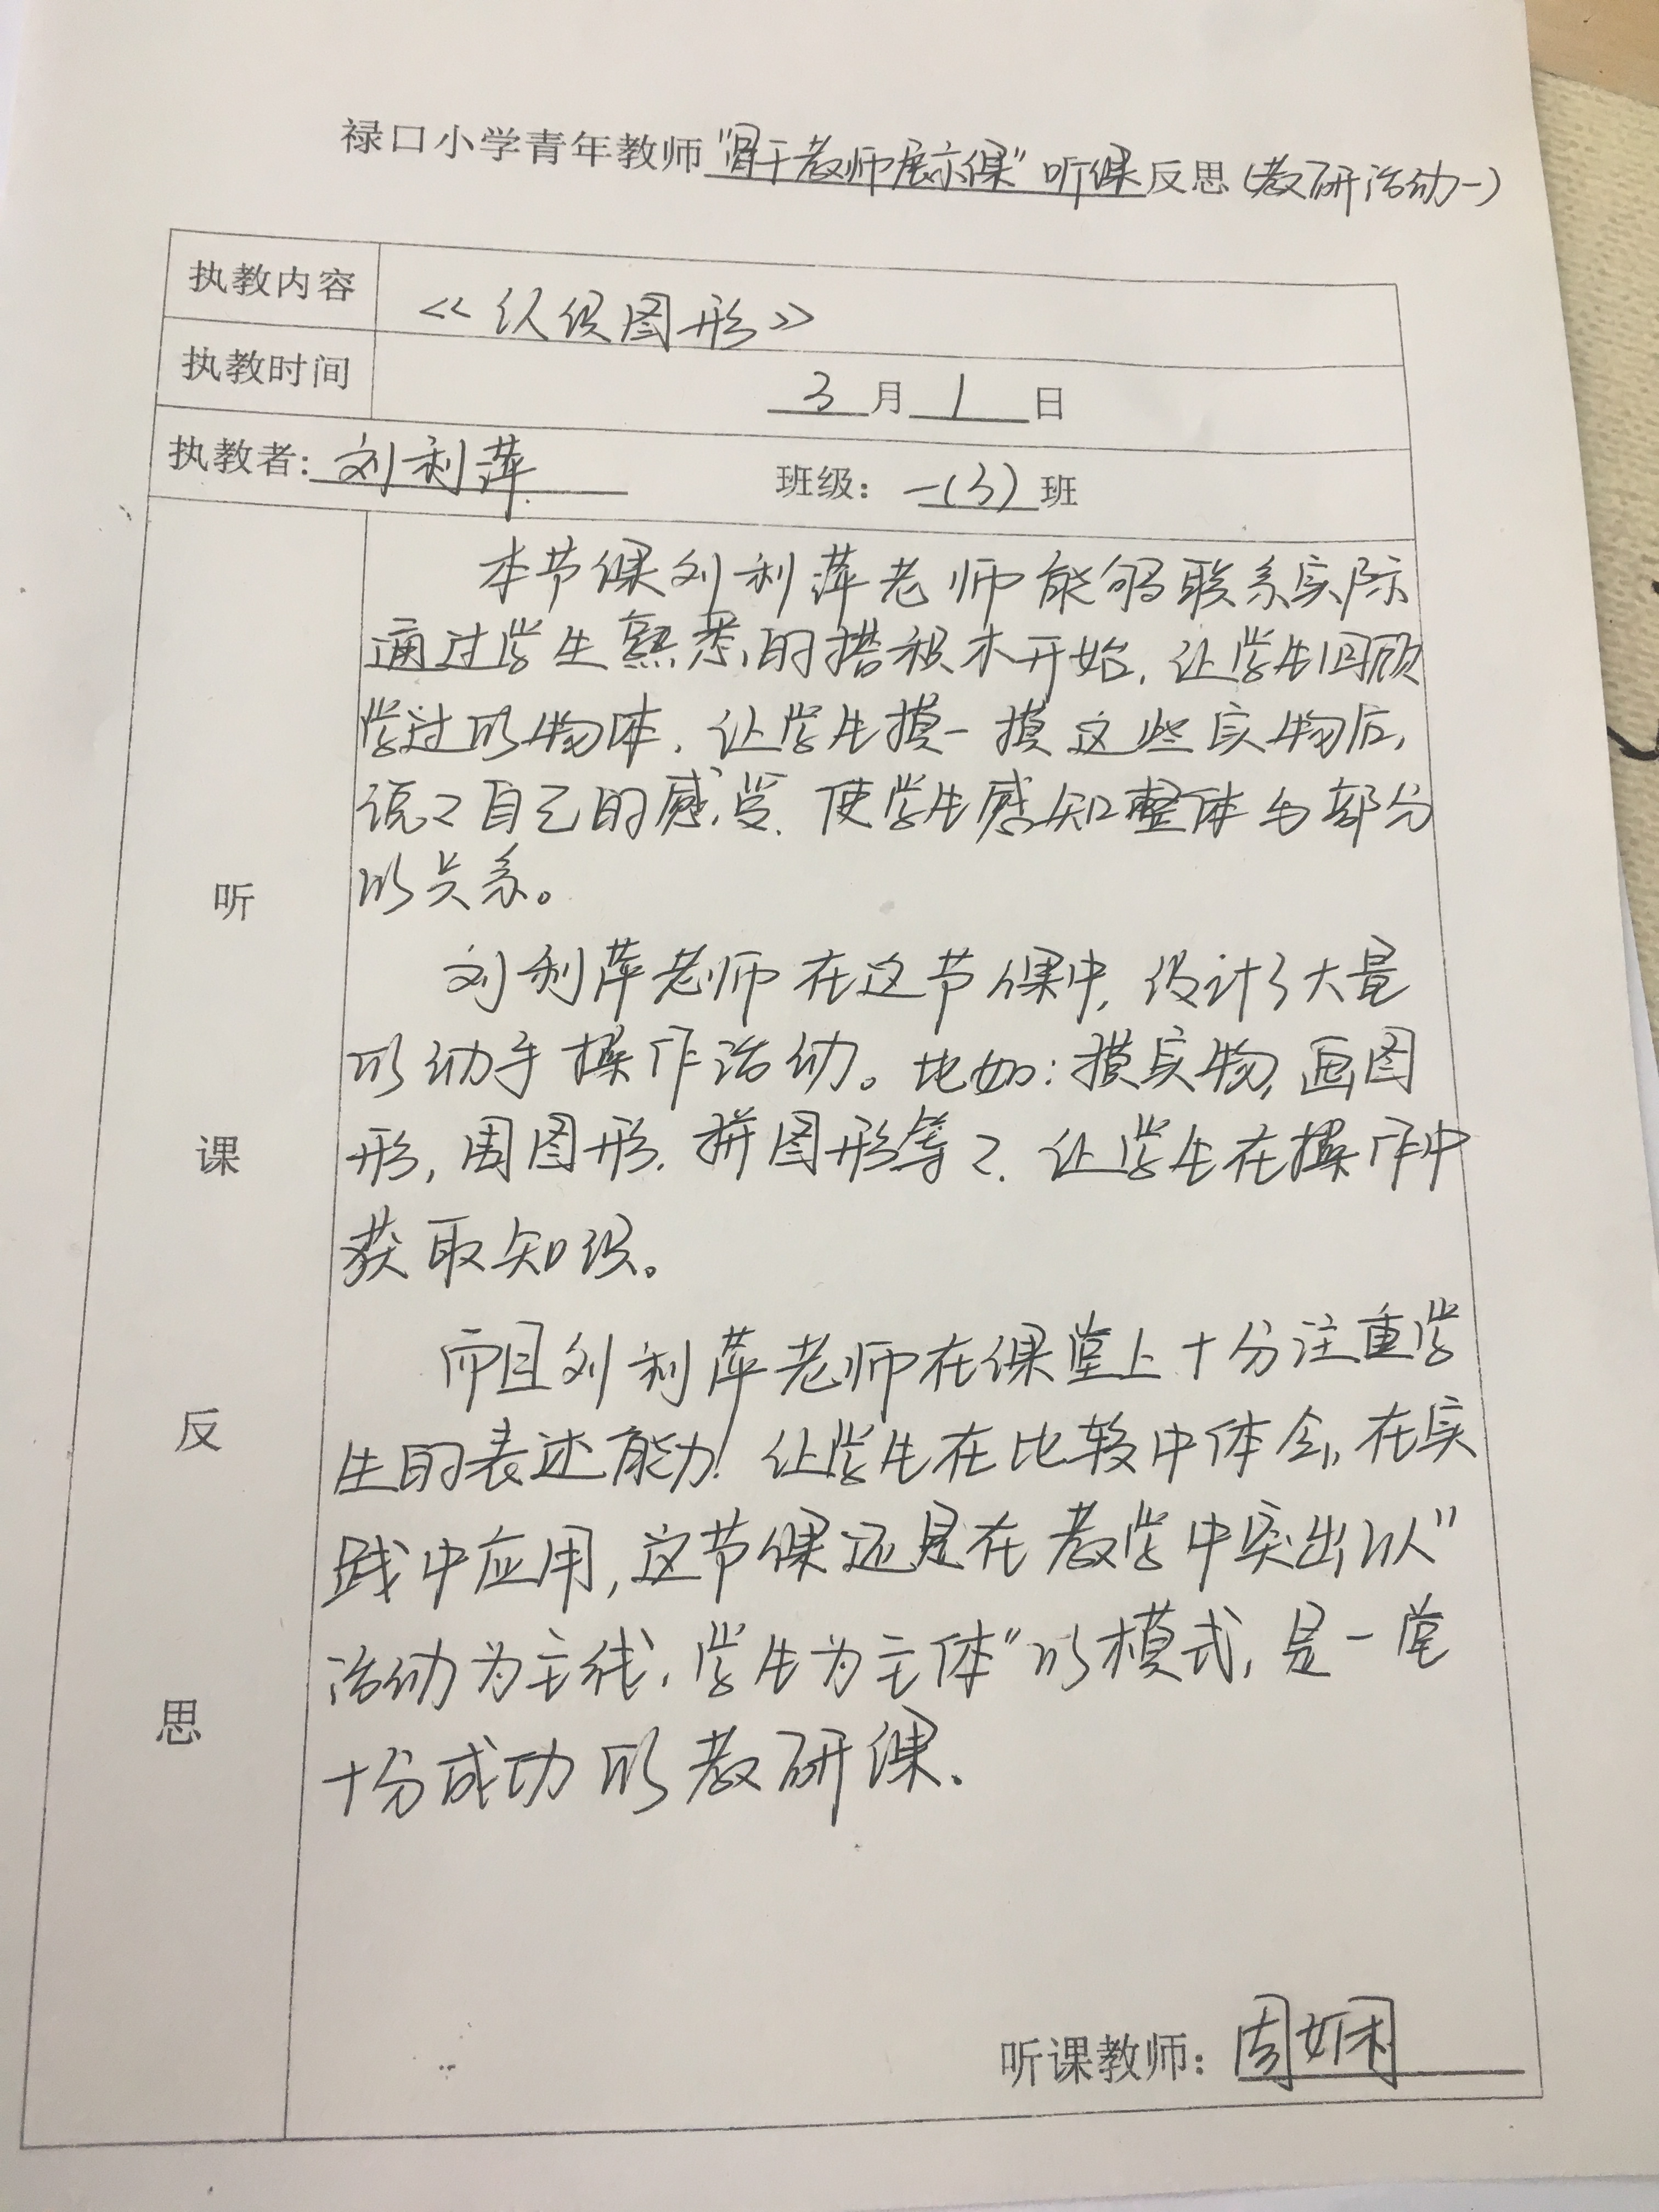 禄口小学青年教师"骨干教师展示课"听课反思(教研活动一)
执教内容 《认识图形》
执教时间 3月1日
执教者:刘利萍 班级:一(3)班
听课反思
本节课刘利萍老师能够联系实际
通过学生熟悉的搭积木开始,让学生回顾
学过的物体,让学生摸一摸这些实物后,
说々自己的感受,使学生感知整体与部分
的关系。
刘利萍老师在这节课中,设计了大量
的动手操作活动。比如:摸实物,画图
形,围图形,拼图形等々,让学生在操作中
获取知识。
而且刘利萍老师在课堂上十分注重学
生的表述能力!让学生在比较中体会,在实
践中应用,这节课还是在教学中突出以"
活动为主线,学生为主体"的模式,是一堂
十分成功的教研课、
听课教师:周娴